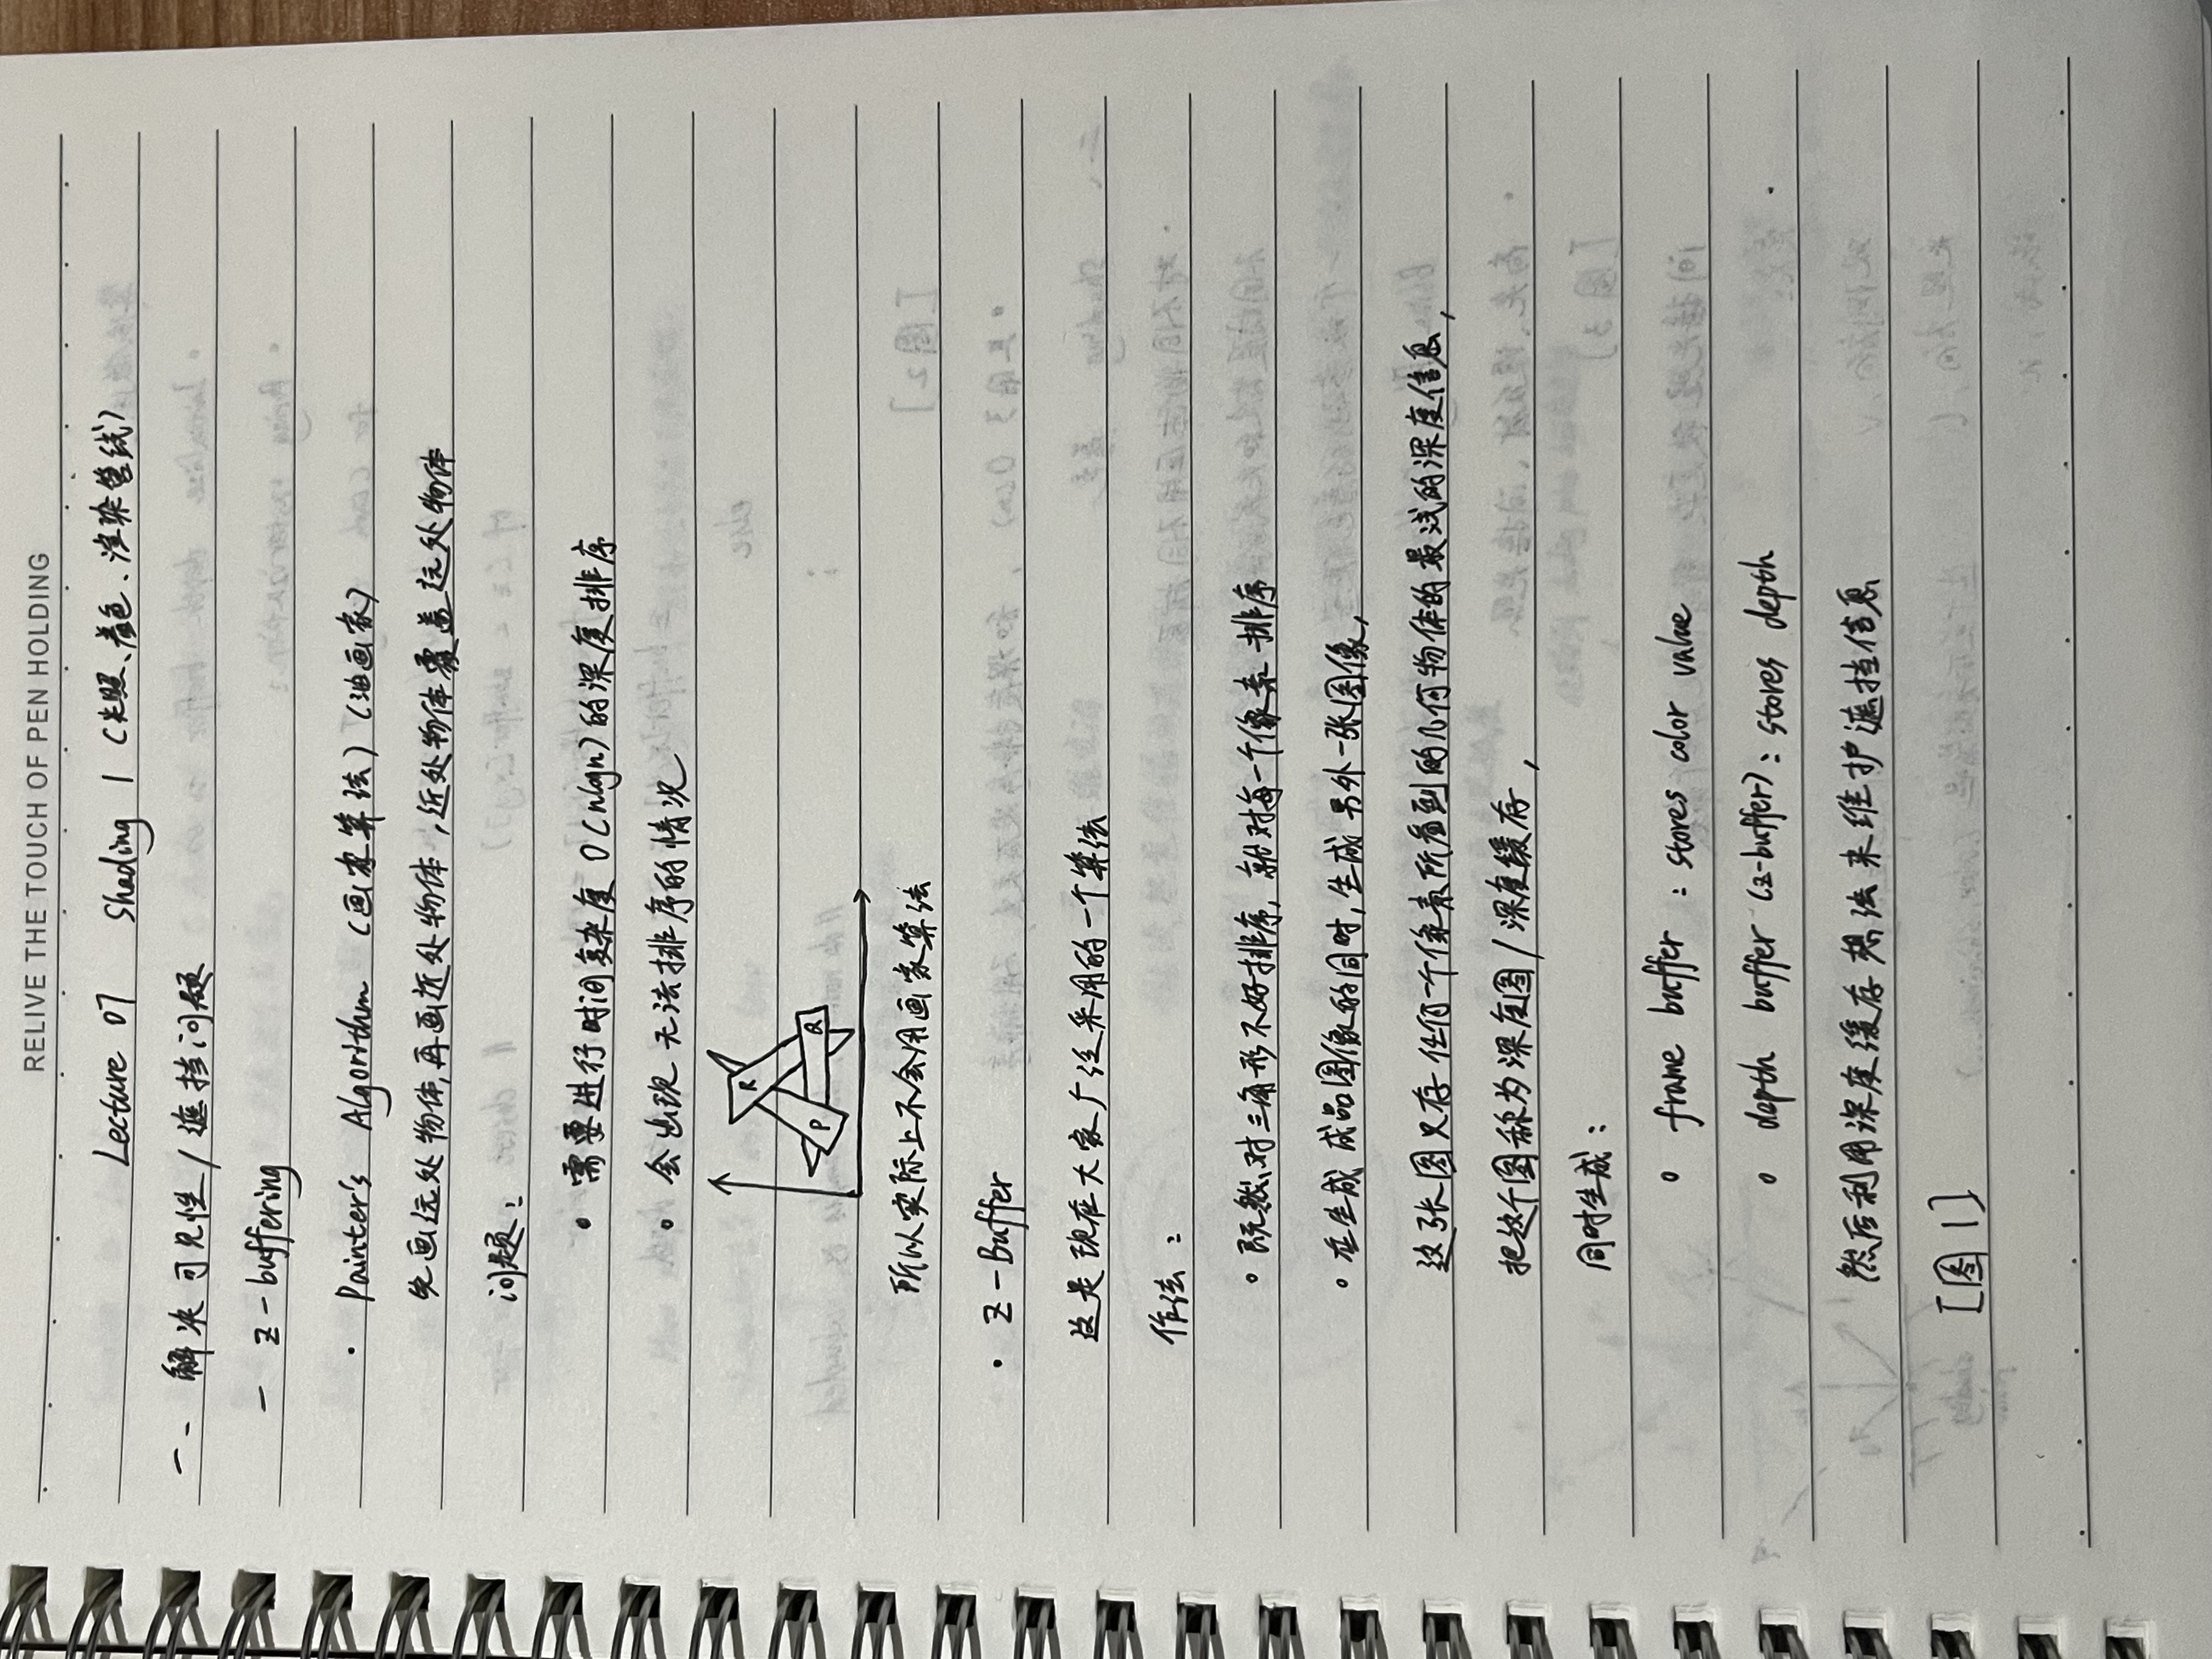 RELIVE THE TOUCH OF PEN HOLDING
Lecture 07 Shading 1 (光照、着色、渲染管线)
一、解决可见性/遮挡问题
- z-buffering
· Painter's Algorithm (画家算法) (油画家)
先画远处物体,再画近处物体,近处物体覆盖远处物体
问题:
∘ 需要进行时间复杂度 O(nlogn) 的深度排序
∘ 会出现无法排序的情况
R
P Q
所以实际上不会用画家算法
· Z-Buffer
这是现在大家广泛采用的一个算法
作法:
∘ 既然对三角形不好排序,就对每一个像素排序
∘ 在生成成品图像的同时,生成另外一张图像,
这张图只存任何一个像素所看到的几何物体的最浅的深度信息,
把这个图称为深度图/深度缓存,
同时生成:
∘ frame buffer: stores color value
∘ depth buffer (z-buffer): stores depth
然后利用深度缓存想法来维护遮挡信息
[图1]